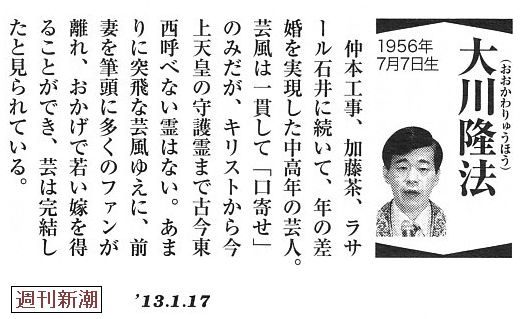 大川隆法
(おおかわりゅうほう)
1956年
7月7日生
仲本工事、加藤茶、ラサ
ール石井に続いて、年の差
婚を実現した中高年の芸人。
芸風は一貫して「口寄せ」
のみだが、キリストから今
上天皇の守護霊まで古今東
西呼べない霊はない。あま
りに突飛な芸風ゆえに、前
妻を筆頭に多くのファンが
離れ、おかげで若い嫁を得
ることができ、芸は完結し
たと見られている。
週刊新潮
'13.1.17